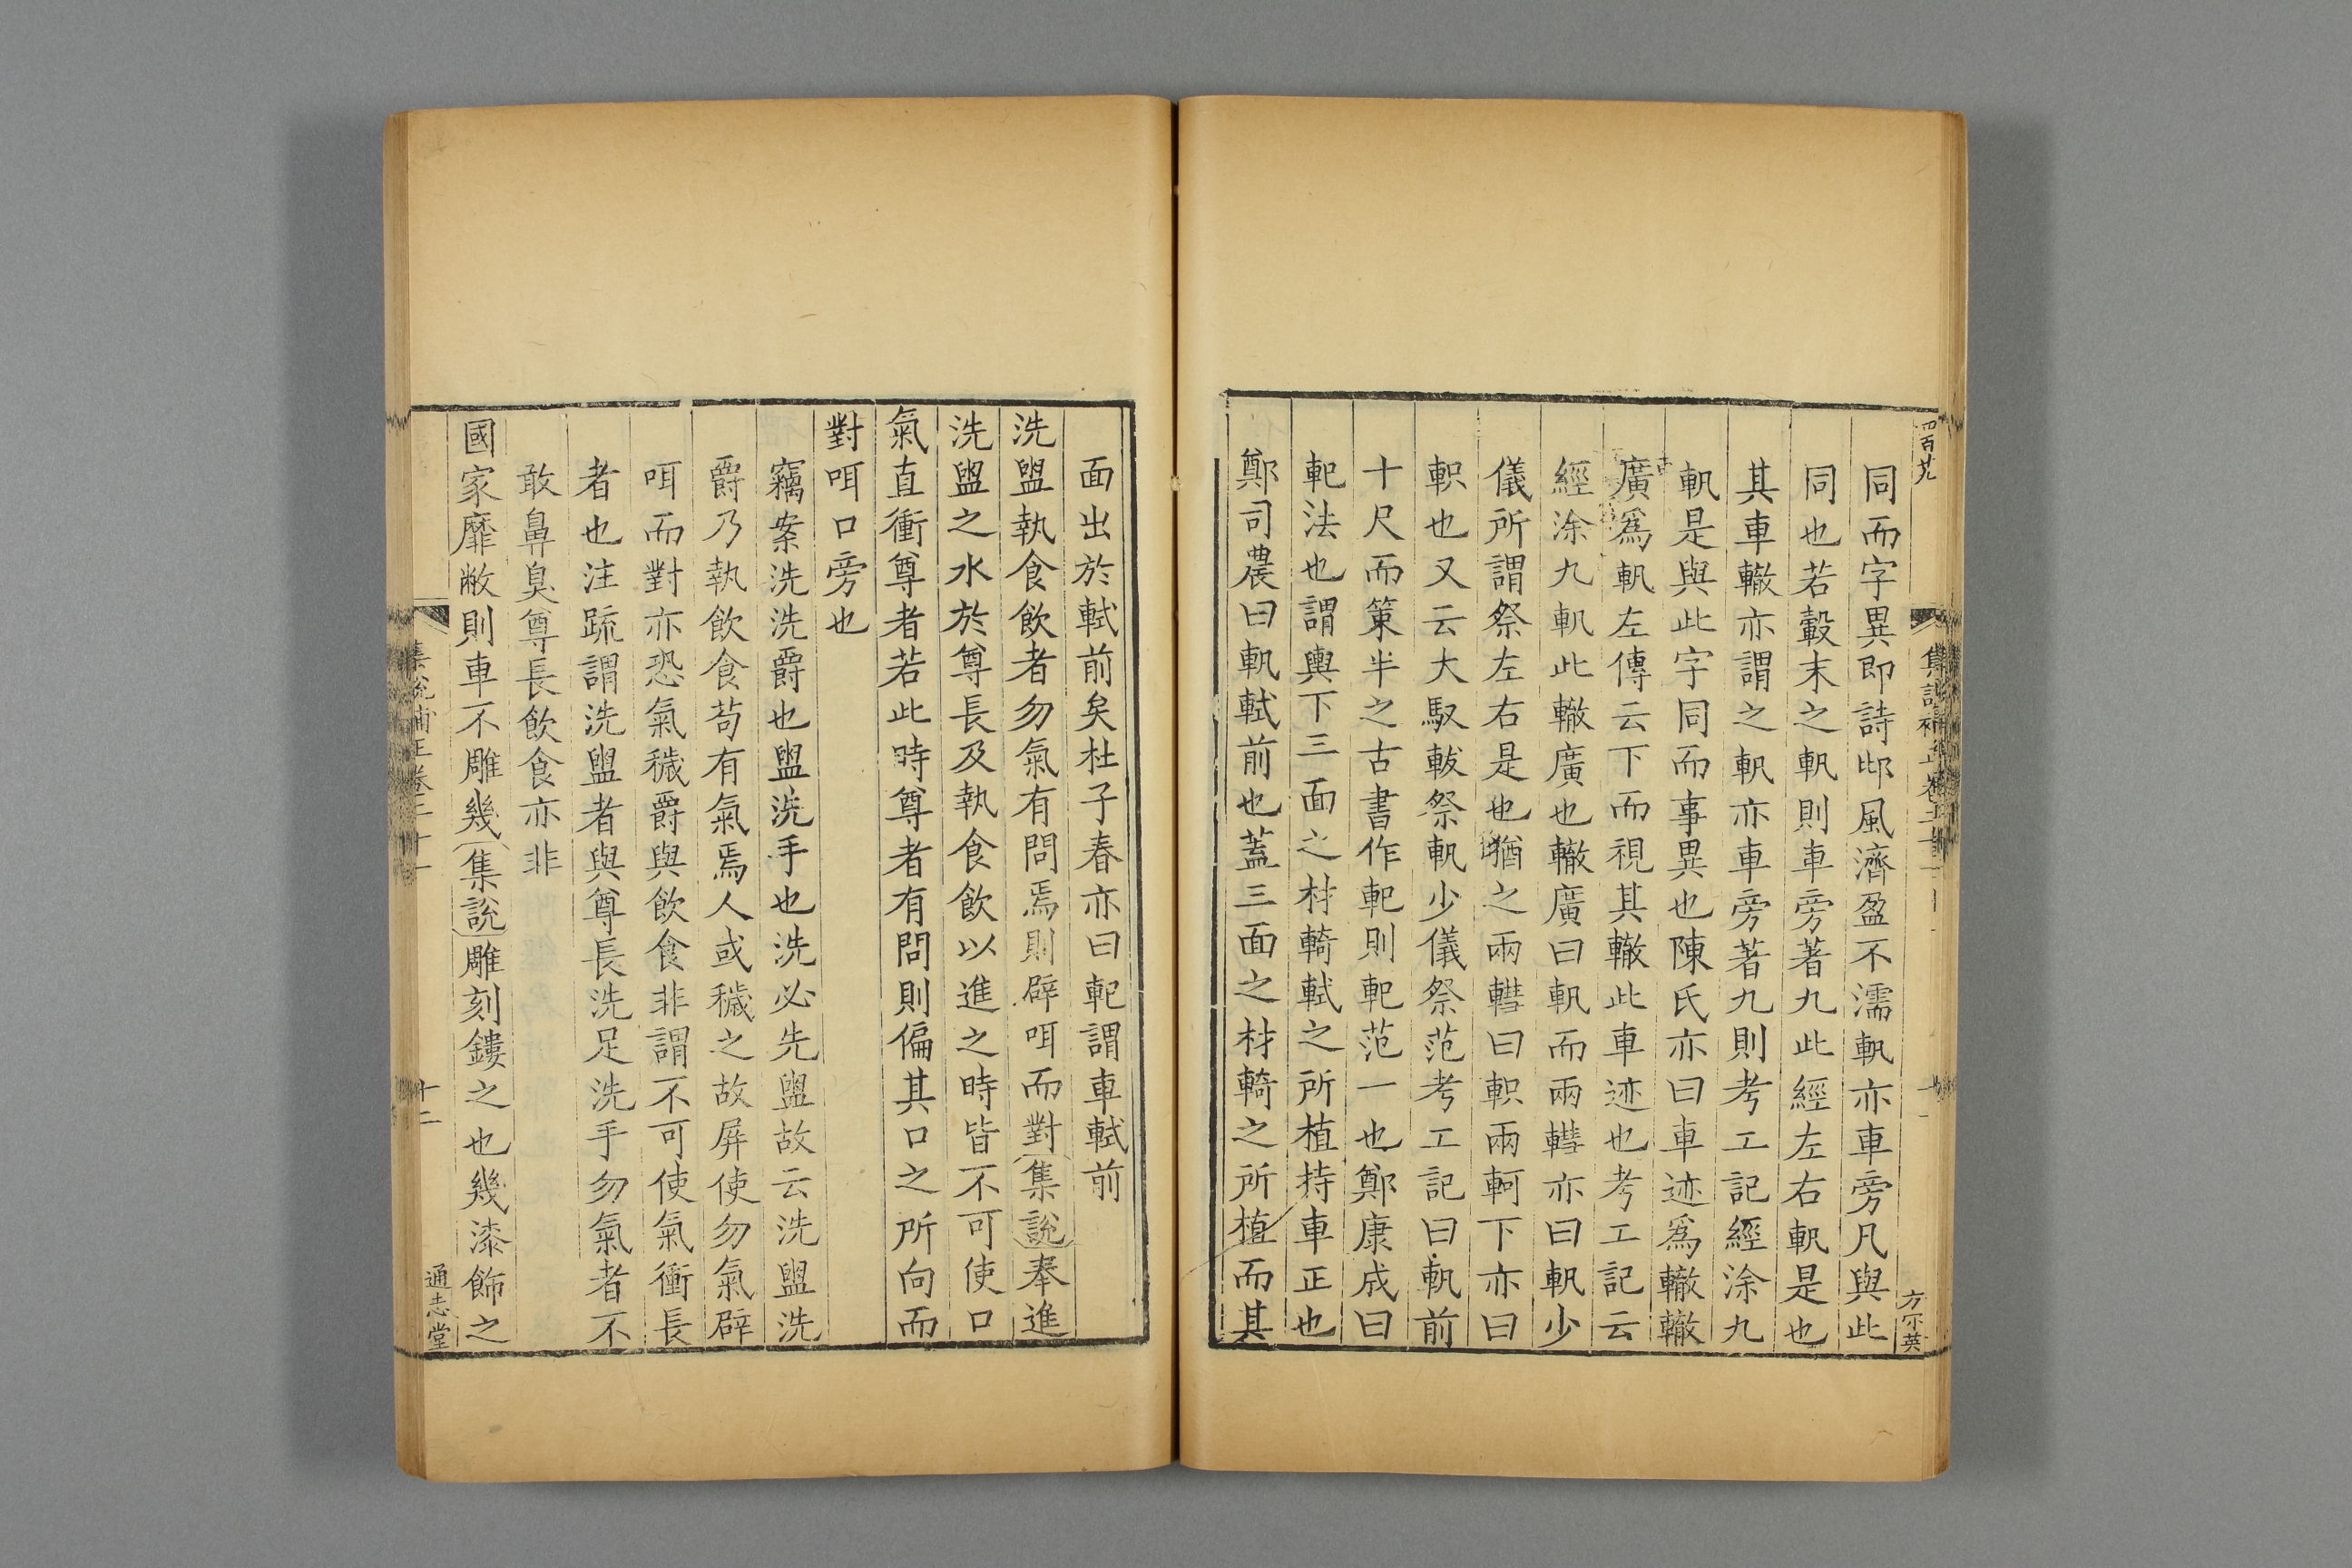 同而字異即詩邶風濟盈不濡軓亦車旁凡與此
同也若轂末之軓則車旁著九此經左右軹是也
其車轍亦謂之軓亦車旁著九則考工記經涂九
軓是與此字同而事異也陳氏亦曰車迹為轍轍
廣為軓左傳云下而視其轍此車迹也考工記云
經涂九軌此轍廣也轍廣曰軓而兩轊亦曰軓少
儀所謂祭左右是也猶之兩轊曰軹兩軻下亦曰
軹也又云大馭軷祭軓少儀祭范考工記曰軓前
十尺而策半之古書作軋則軋范一也鄭康成曰
軋法也謂輿下三面之材輢軾之所植持車正也
鄭司農曰軓軾前也蓋三面之材輢之所植而其
四百九
方宗英
面出於軾前矣杜子春亦曰軋謂車軾前
洗盥執食飲者勿氣有問焉則辟咡而對集說奉進
洗盥之水於尊長及執食飲以進之時皆不可使口
氣直衝尊者若此時尊者有問則偏其口之所向而
對咡口旁也
竊案洗洗爵也盥洗手也洗必先盥故云洗盥洗
爵乃執飲食苟有氣焉人或穢之故屏使勿氣辟
咡而對亦恐氣穢爵與飲食非謂不可使氣衝長
者也注疏謂洗盥者與尊長洗足洗手勿氣者不
敢鼻臭尊長飲食亦非
國家靡敝則車不雕幾集說雕刻鏤之也幾漆飾之
集說補正卷二十一
十二
通志堂